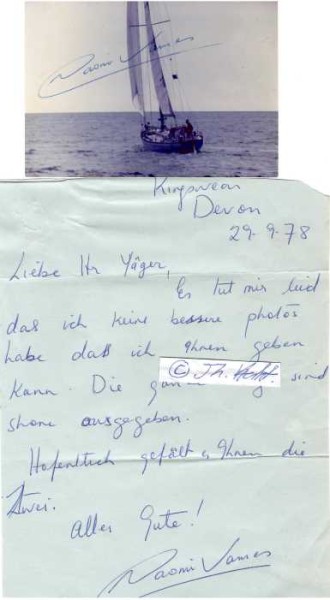 Naomi James
Kingswear
Devon
29-9-78
Liebe Hr Yäger,
Es tut mir leid
das ich keine bessere photos
habe daß ich Ihnen geben
Kann. Die sind
shone ausgegeben.
Hofentlich gefält es Ihnen die
zwei.
Alles Gute!
Naomi James